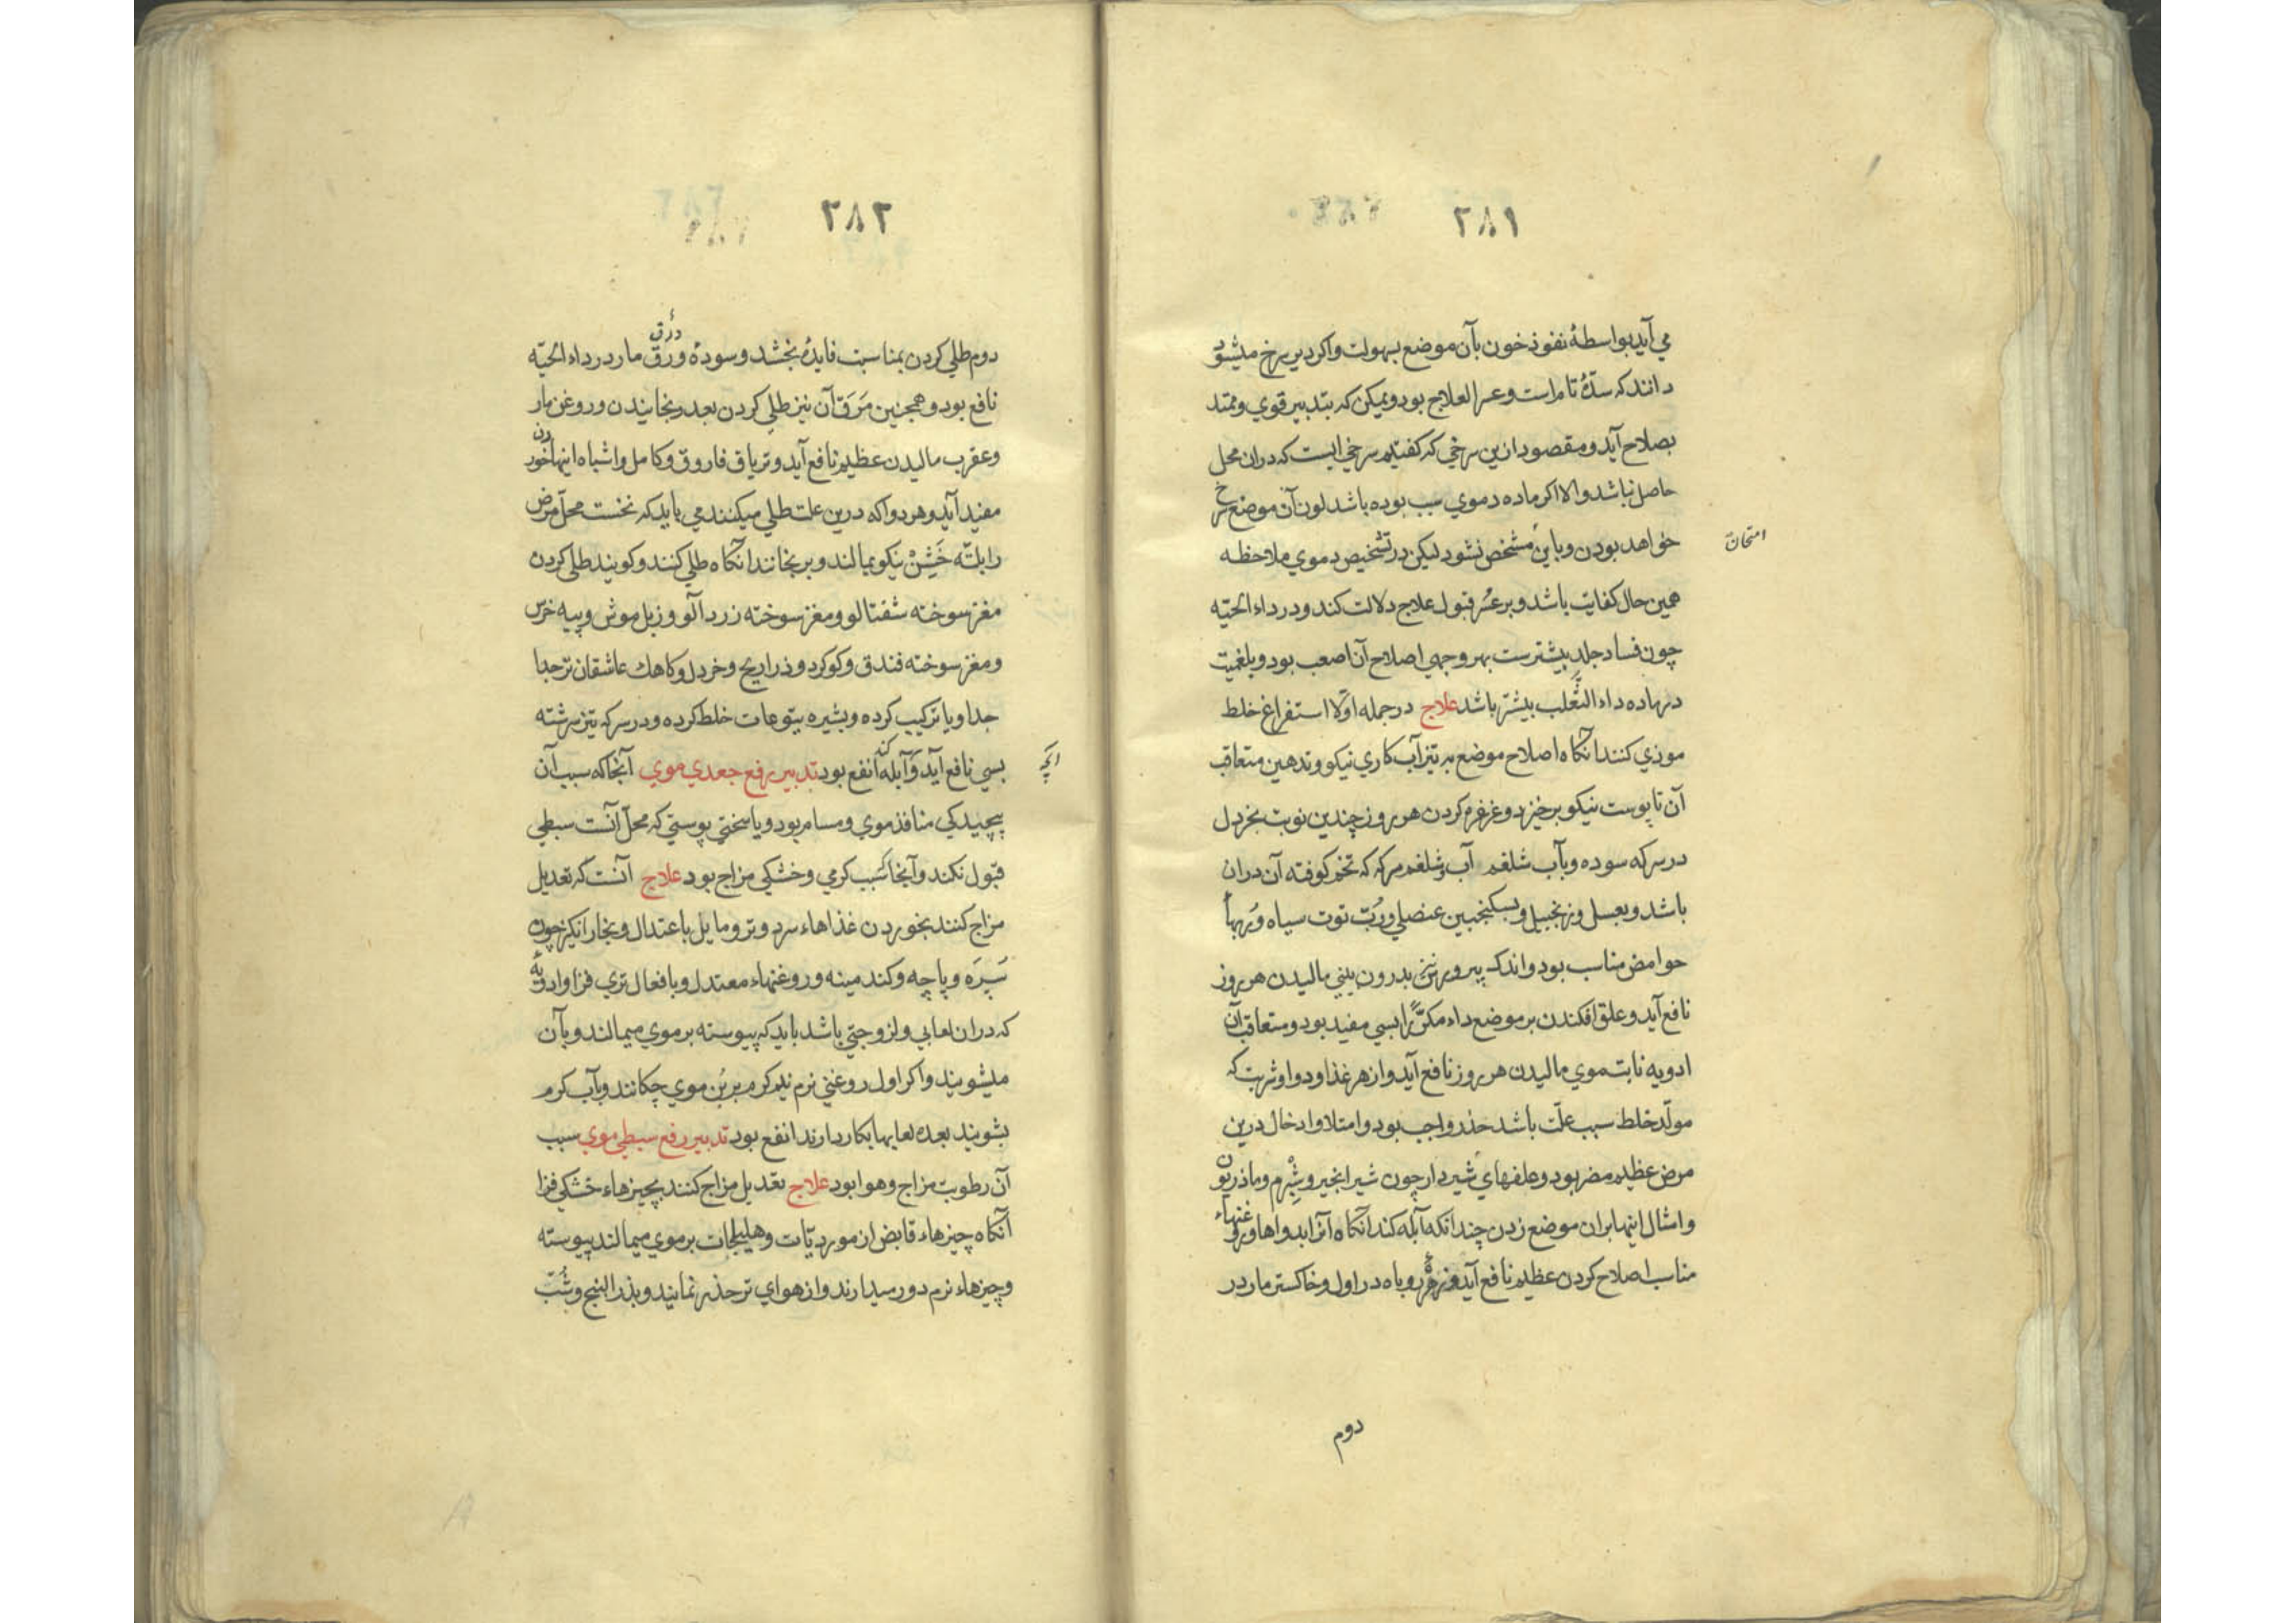 ۲۸۱
مي آيد بواسطهٔ نفوذ خون بآن موضع بسهولت واكر دير سرخ ميشود
دانند كه سدّهٔ تام است وعسر العلاج بود وممكن كه بتدبير قوي وممتد
بصلاح آيد ومقصود ازين سرخي كه كفتيم سرخي ايست كه دران محل
حاصل نباشد والا اكر ماده دموي سبب بوده باشد لون آن موضع سرخ
خواهد بودن وباين مشخص نشود ليكن در تشخيص دموي ملاحظه
امتحان
همين حال كفايت باشد وبر عسر قبول علاج دلالت كند ودر داء الحيّه
چون فساد جلد بيشترست بهر وجهي اصلاح آن اصعب بود وبلغميت
در ماده داء الثعلب بيشتر باشد علاج در جمله اوّلا استفراغ خلط
موذي كنند آنكاه اصلاح موضع به تيزآب كاري نيكو وتدهين متعاقب
آن تا پوست نيكو برخيزد وغرغره كردن هر روز چندين نوبت بخردل
در سركه سوده وبآب شلغم آب وشلغم سركه كه تخم كوفته آن دران
باشد وبعسل وزنجبيل وبسكنجبين عنصلي ورُبّ توت سياه ورُبهاء
حوامض مناسب بود واندك پيه بدرون بيني ماليدن هر روز
نافع آيد وعلق افكندن بر موضع داء مكرّرًا بسي مفيد بود ومتعاقب آن
ادويه نابت موي ماليدن هر روز نافع آيد واز هر غذا ودوا وشربت كه
مولّد خلط سبب علّت باشد حذر واجب بود وامتلا وادخال درين
مرض عظيم مضر بود وعلفهاي شيردار چون شير انجير وشبرم وماذريون
وامثال اينها بران موضع زدن چندانكه آبله كند آنكاه آنرا بدواها وروغنهاء
مناسب اصلاح كردن عظيم نافع آيد وزهرهٔ روباه در اول وخاكستر مار در
دوم
۲۸۲
دوم طلي كردن بمناسبت فايده بخشد وسودهٔ ورق مار در داء الحيّه
ذرق
نافع بود وهمچنين مَرَق آن نيز طلي كردن بعد رنجانيدن وروغن مار
وعقرب ماليدن عظيم نافع آيد وترياق فاروق وكامل واشباه اينها خوردن
مفيد آيد وهر دوا كه درين علت طلي ميكنند مي بايد كه نخست محلّ مرض
را بلتّه خَشِنْ نيكو بمالند وبرنجانند آنكاه طلي كنند وكويند طلي كردن
مغز سوخته شفتالو ومغز سوخته زردآلو وزبل موش وپيه خرس
ومغز سوخته فندق وكوكرد وذراريح وخردل وكاهك عاشقان ترجدا
جدا ويا تركيب كرده وبشيره يتوعات خلط كرده ودر سركه تيز سرشته
بسي نافع آيد وآنچه آبله كند انفع بود تدبير رفع جعدي موي آنجا كه سبب آن
آنچه
پيچيدكي منافذ موي ومسام بود ويا سختي پوستي كه محلّ آنست سبطي
قبول نكند وآنجا كه سبب كرمي وخشكي مزاج بود علاج آنست كه تعديل
مزاج كنند بخوردن غذاهاء سرد وتر ومايل باعتدال وبخارانكيز چون
سَيرَه وپاچه وكند مينه وروغنهاء معتدل وبافعال تري فزا وادويهٔ
كه دران لعابي ولزوجتي باشد بايد كه پيوسته بر موي ميمالند وبآن
ميشويند واكر اول روغني نرم نيم كرم بر بُن موي چكانند وبآب كرم
بشويند بعده لعابها بكار دارند انفع بود تدبير رفع سبطي موي سبب
آن رطوبت مزاج وهوا بود علاج تعديل مزاج كنند بچيزهاء خشكي فزا
آنكاه چيزهاء قابض از موردیّات وهليلجات بر موي ميمالند پيوسته
وچيزهاء نرم دور ميدارند واز هواي تر حذر نمايند وبذر البنج وشبّ